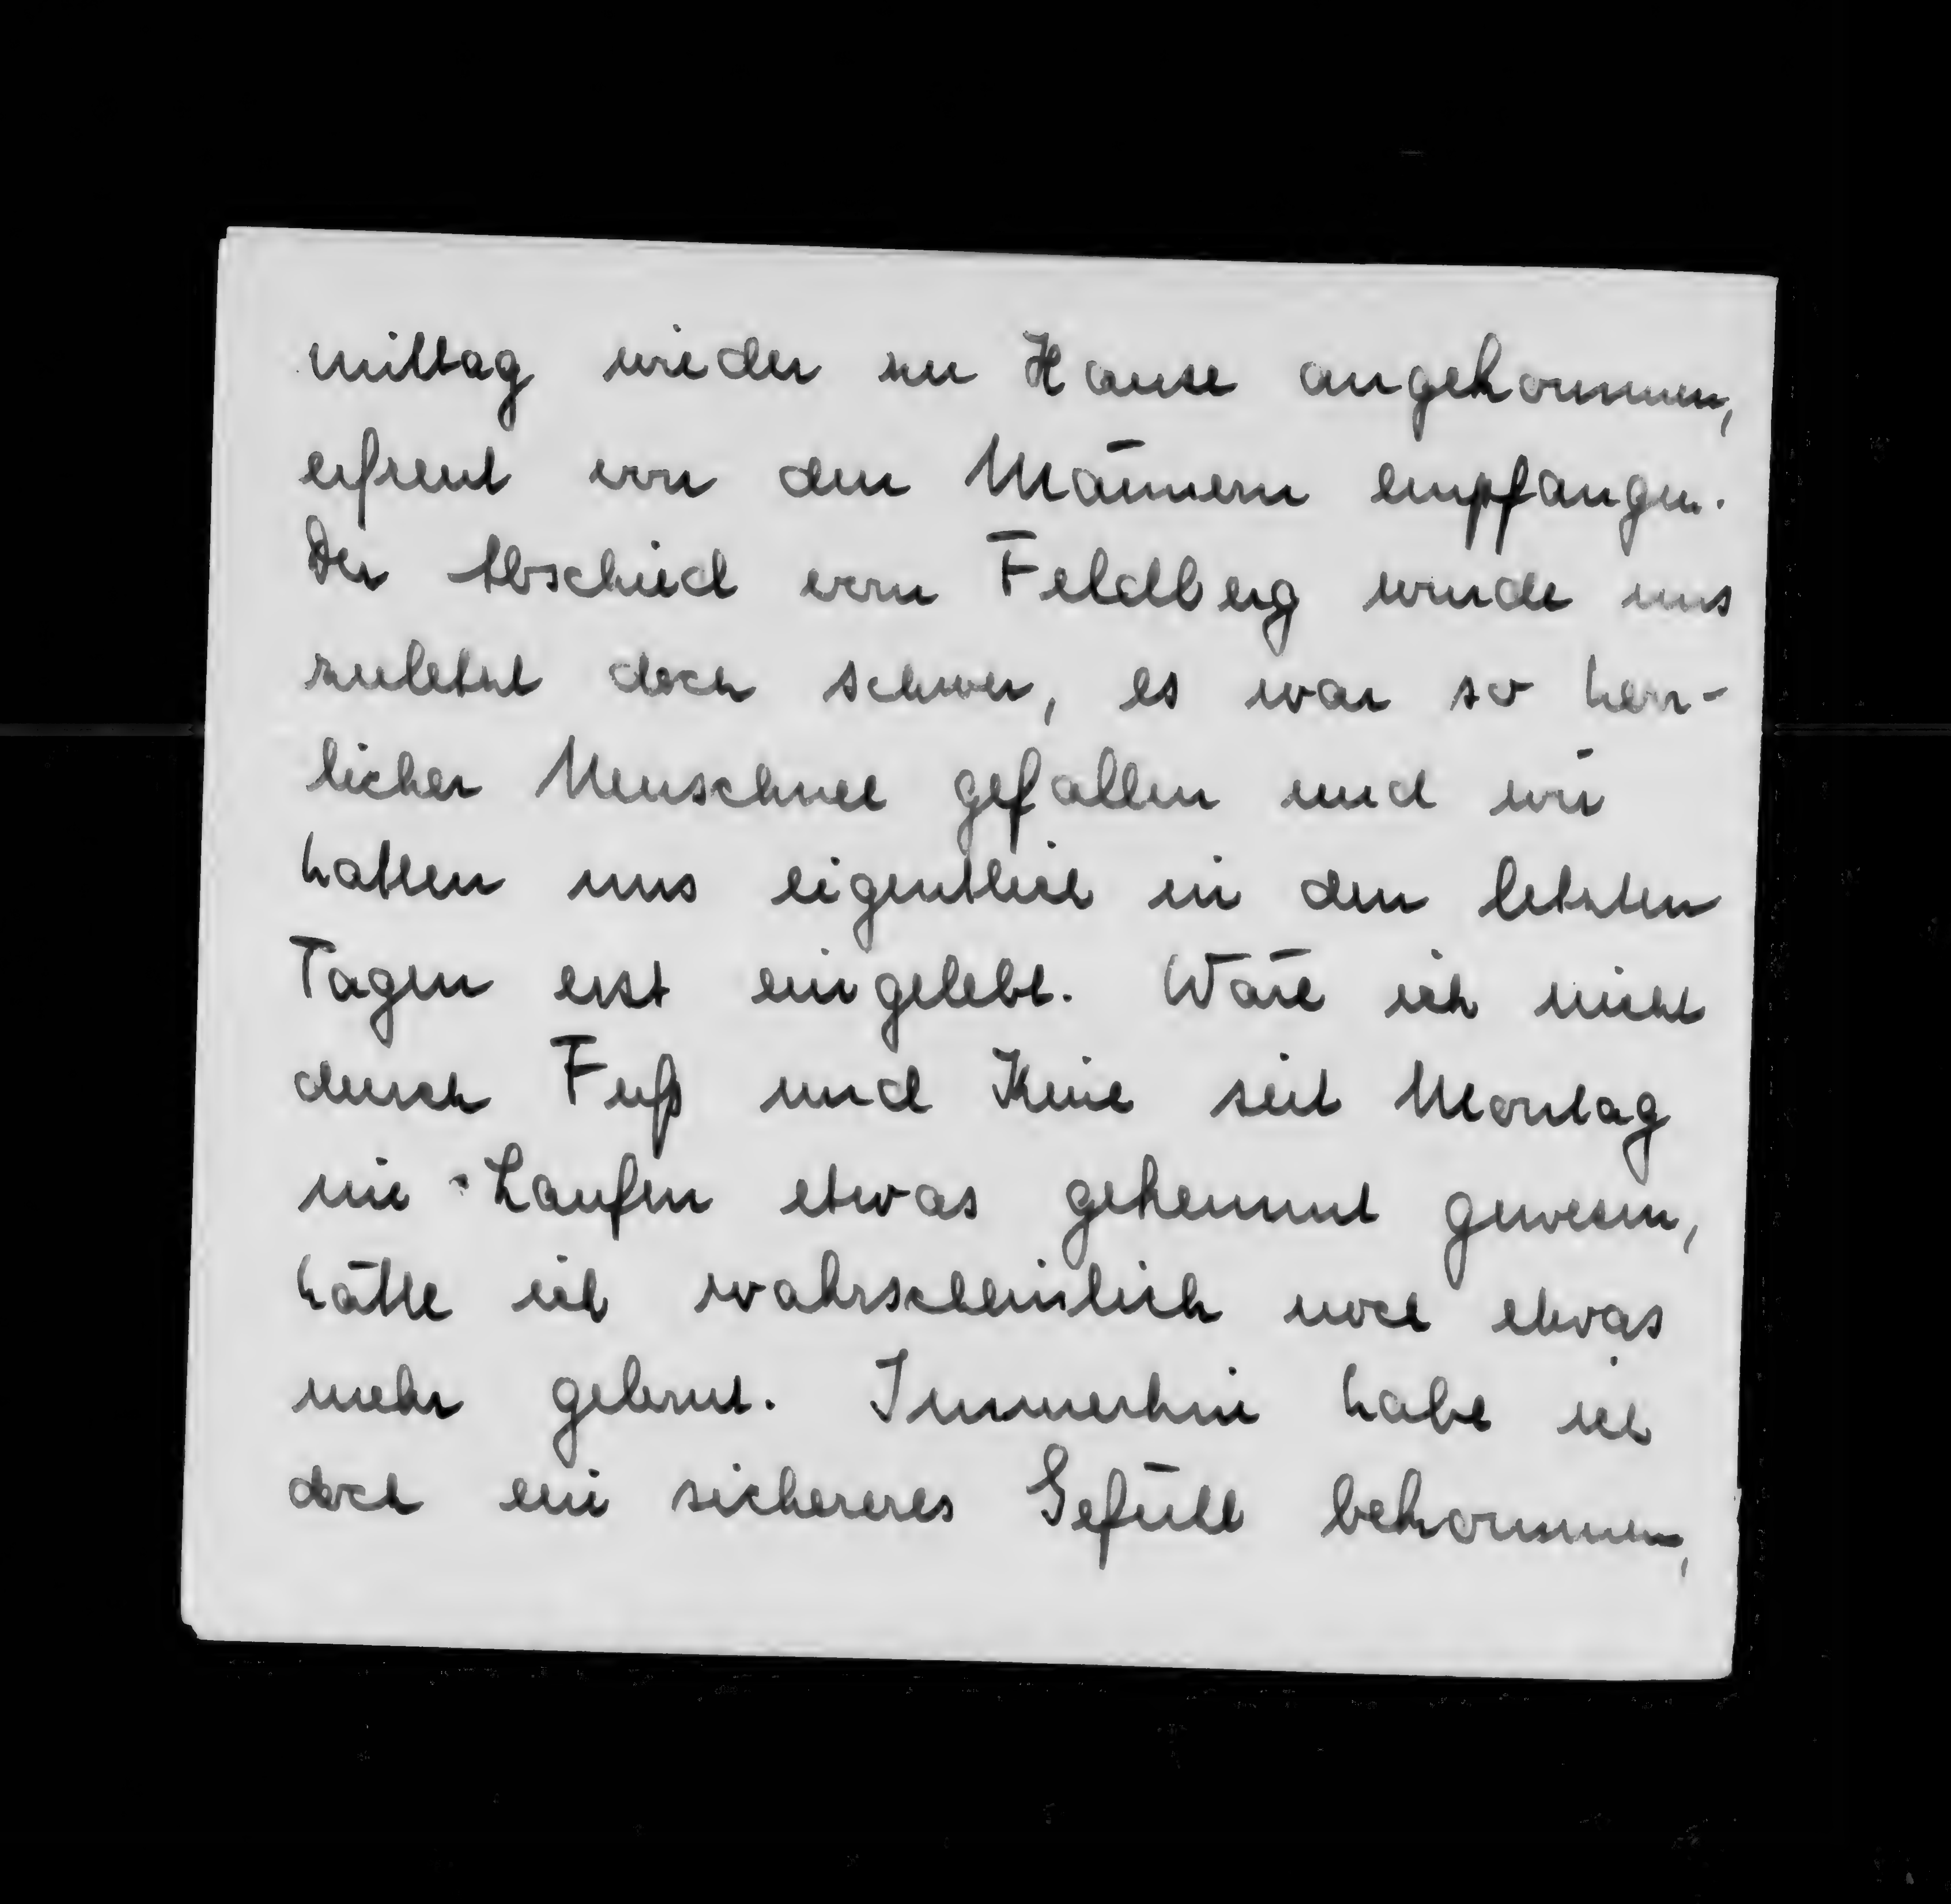 mittag wieder zu Hause angekommen,
erfreut von den Männern empfangen.
Der Abschied vom Feldberg wurde uns
zuletzt doch schwer, es war so herr-
licher Neuschnee gefallen und wir
hatten uns eigentlich in den letzten
Tagen erst eingelebt. Wäre ich nicht
durch Fuß und Knie seit Montag
im Laufen etwas gehemmt gewesen,
hätte ich wahrscheinlich noch etwas
mehr gelernt. Immerhin habe ich
doch ein sichereres Gefühl bekommen,